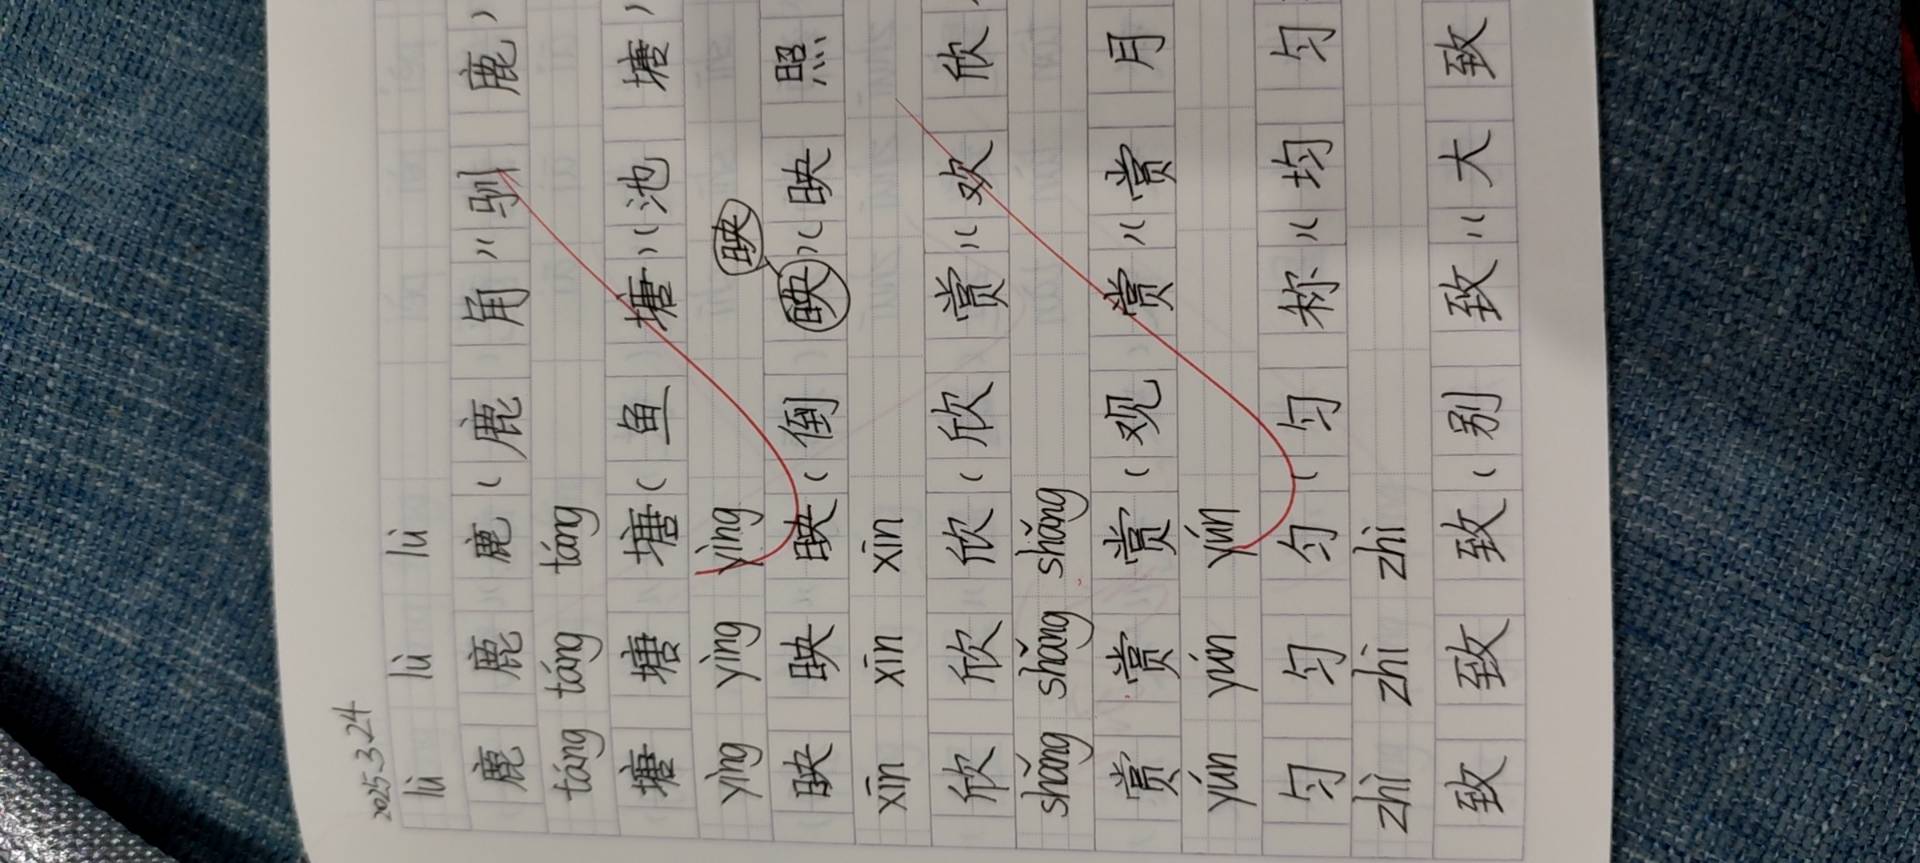 2025.3.24
lù lù lù
鹿 鹿 鹿(鹿角)(驯鹿)
táng táng táng
塘 塘 塘(鱼塘)(池塘)
yìng yìng yìng 映
映 映 映(倒映)(映照
xīn xīn xīn
欣 欣 欣(欣赏)(欢欣)
shǎng shǎng shǎng
赏 赏 赏(观赏)(赏月
yún yún yún
匀 匀 匀(匀称)(均匀
zhì zhì zhì
致 致 致(别致)(大致